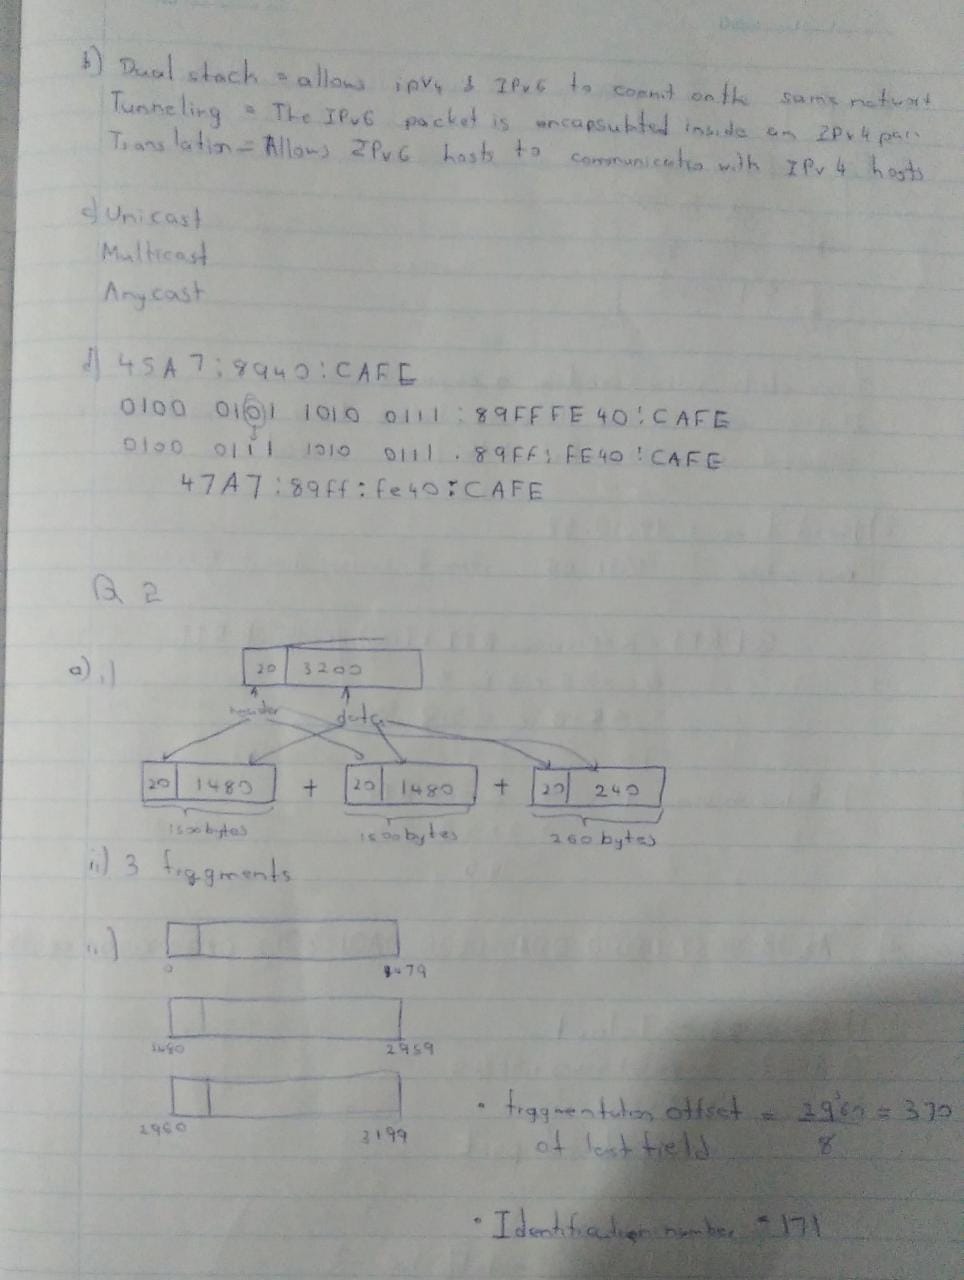 b) Dual stack = allows ipv4 & IPv6 to commit on the same network
Tunneling = The IPv6 packet is encapsulted inside an IPv4 pac
Translation = Allows IPv6 hosts to communicatio with IPv4 hosts
c) Unicast
Multicast
Anycast
d) 45A7:8940:CAFE
0100 0101 1010 0111 : 89FFFE40:CAFE
0100 0111 1010 0111 . 89FF:FE40:CAFE
47A7:89ff:fe40:CAFE
Q 2
a) i)
20 3200
header data
20 1480 + 20 1480 + 20 240
1500 bytes 1500 bytes 260 bytes
ii) 3 fraggments
ii)
0 1479
1480 2959
2960 3199
• fraggmentation offset = 2960 = 370
of last field 8
• Identification number = 171